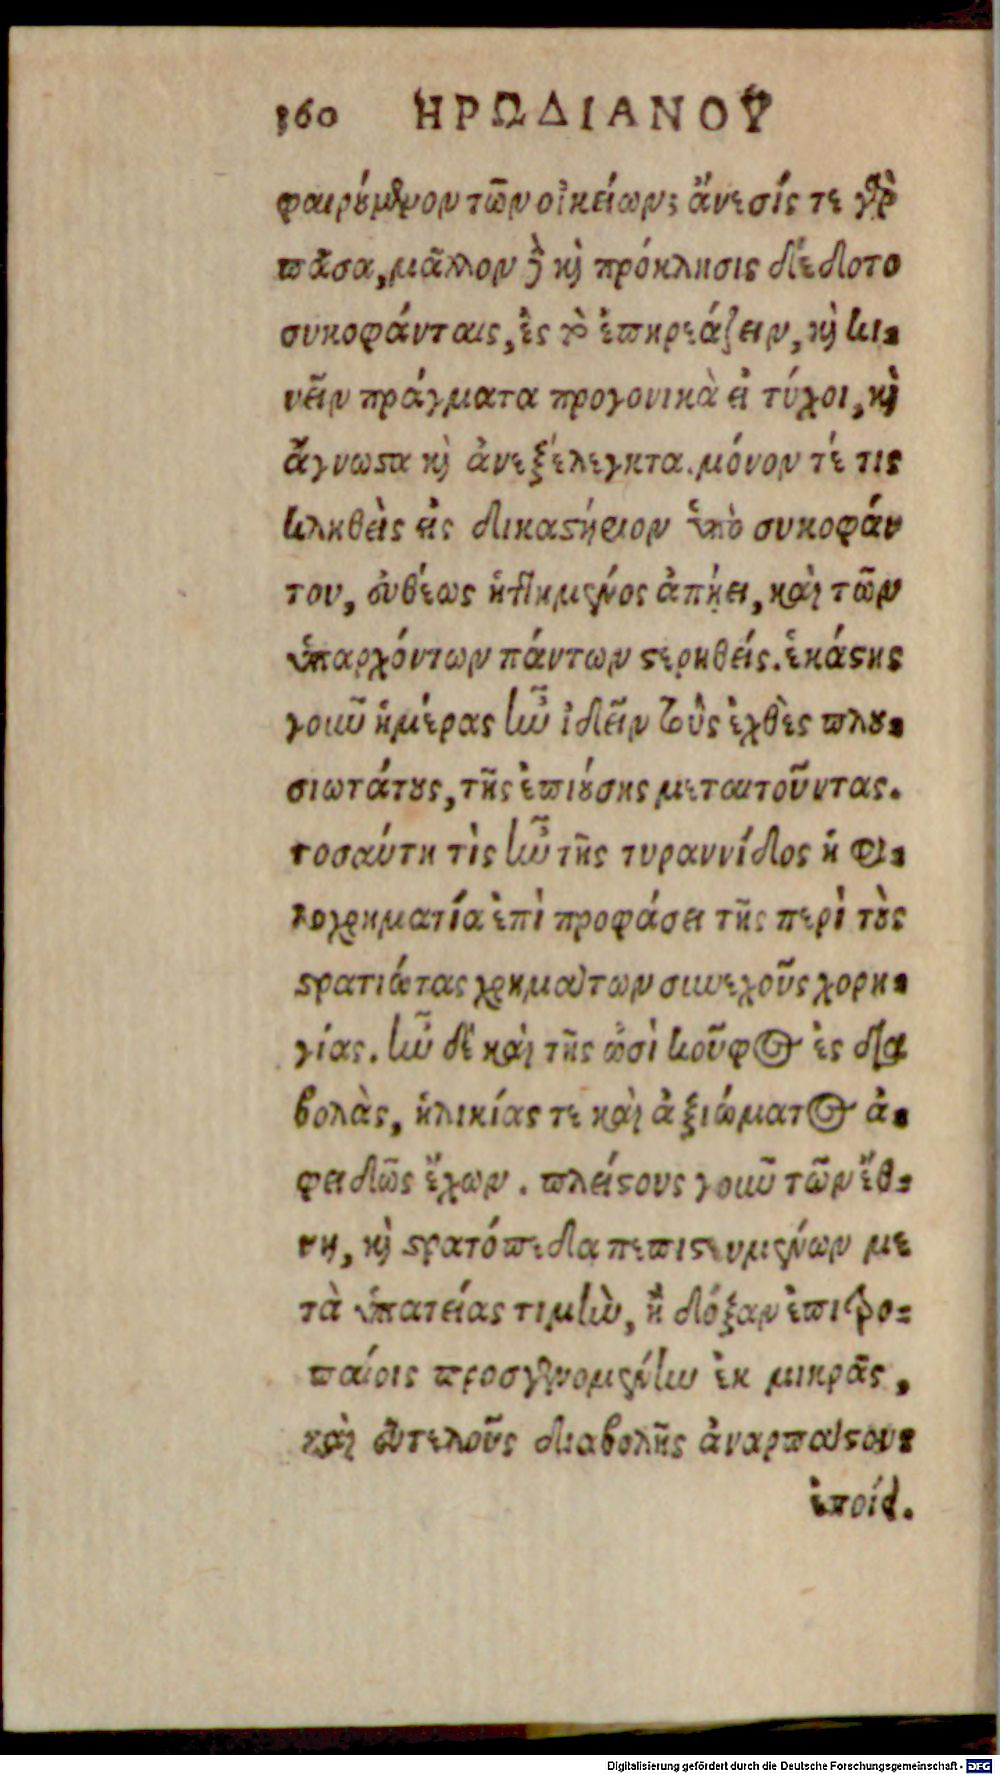 360 ἩΡΩΔΙΑΝΟΥ͂
φαιρούμενον τῶν οἰκείων; ἄνεσίς τε γὰρ
πᾶσα, μᾶλλον δὲ καὶ πρόκλησις δέδοτο
συκοφάνταις, ἐς τὸ ἐπηρεάζειν, καὶ κι-
νεῖν πράγματα προγονικὰ εἰ τύχοι, καὶ
ἄγνωστα καὶ ἀνεξέλεγκτα. μόνον τέ τις
κληθεὶς εἰς δικαστήριον ὑπὸ συκοφάν
του, εὐθέως ἡττημένος ἀπῄει, καὶ τῶν
ὑπαρχόντων πάντων στερηθείς. ἑκάστης
γοιῦ ἡμέρας ἦν ἰδεῖν τοὺς ἐχθὲς πλου-
σιωτάτους, τῆς ἐπιούσης μεταιτοῦντας.
τοσαύτη τὶς ἦν τῆς τυραννίδος ἡ φι-
λοχρηματία ἐπὶ προφάσει τῆς περὶ τοὺς
στρατιώτας χρημάτων συνεχοῦς χορη-
γίας. ἦν δὲ καὶ τῆς ὠσὶ κοῦφος ἐς δια
βολὰς, ἡλικίας τε καὶ ἀξιώματος ἀ-
φειδῶς ἔχων. πλείστους γοῦν τῶν ἔθ-
νη, καὶ στρατόπεδα πεπιστευμένων με
τὰ ὑπατείας τιμὴν, ἢ δόξαν ἐπὶ τρο-
παίοις προσγενομένην ἐκ μικρᾶς,
καὶ εὐτελοῦς διαβολῆς ἀναρπάστους
ἐποίει.
Digitalisierung gefördert durch die Deutsche Forschungsgemeinschaft - DFG